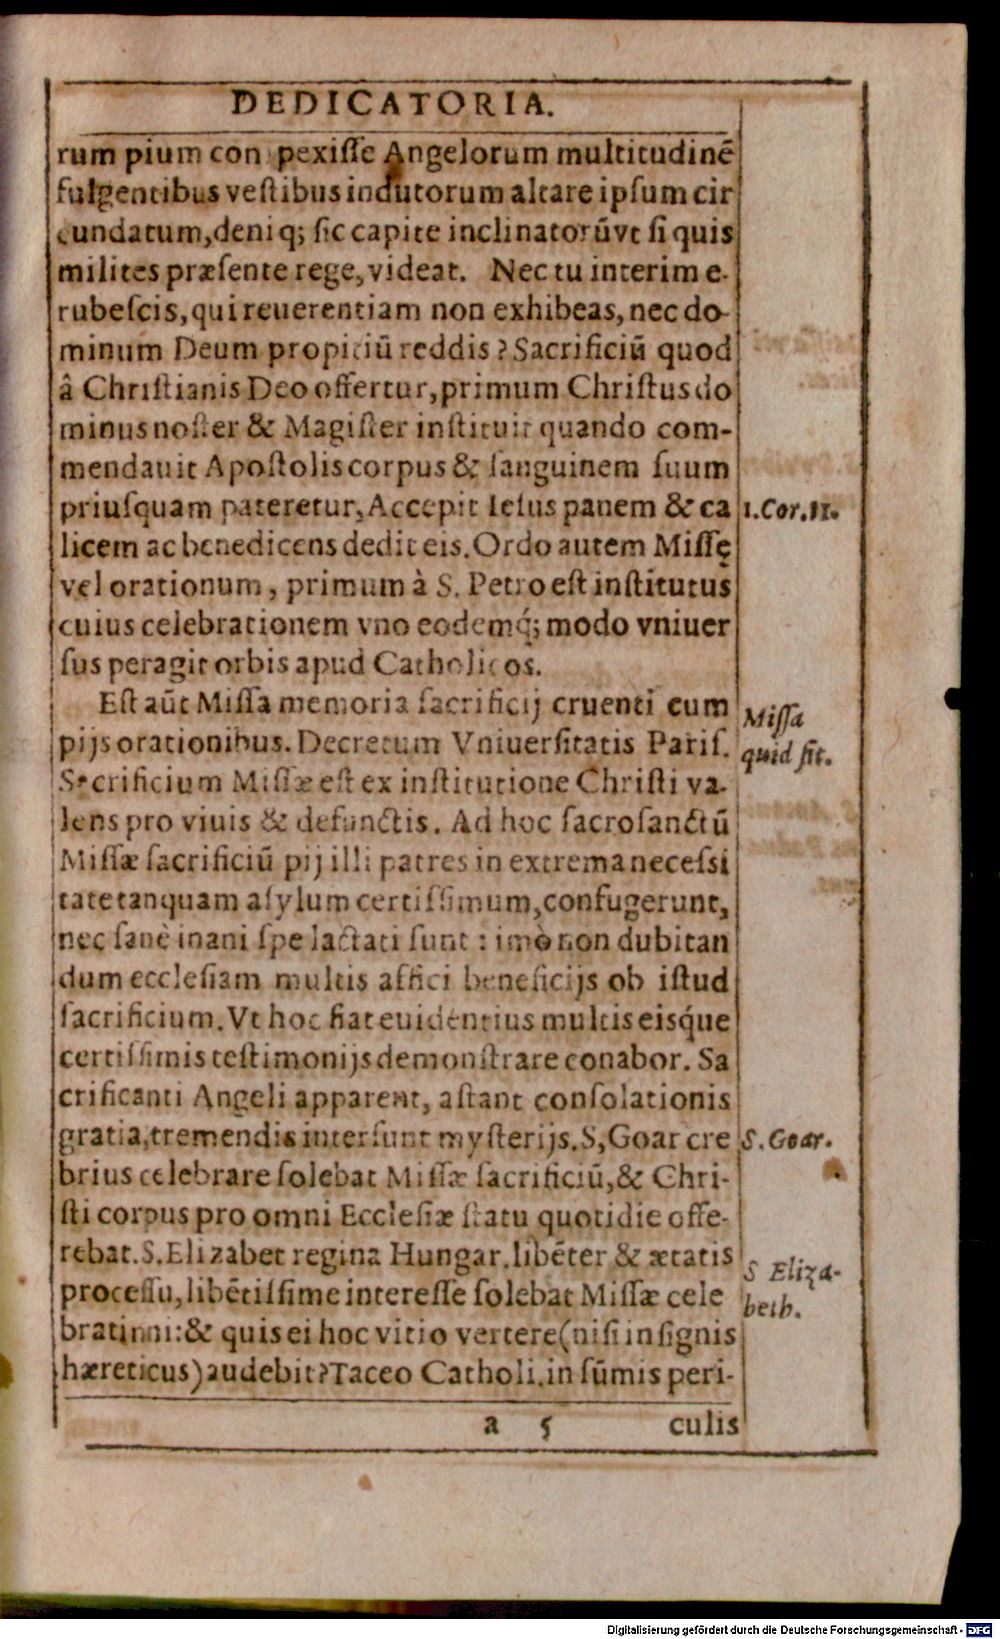 DEDICATORIA.
rum pium con pexiſſe Angelorum multitudinē
fulgentibus veſtibus indutorum altare ipſum cir
cundatum, deniq; ſic capite inclinatorū vt ſi quis
milites præſente rege, videat. Nec tu interim e-
rubeſcis, qui reuerentiam non exhibeas, nec do-
minum Deum propitiū reddis? Sacrificiū quod
â Chriſtianis Deo offertur, primum Chriſtus do
minus noſter & Magiſter inſtituit quando com-
mendauit Apoſtolis corpus & ſanguinem ſuum
priuſquam pateretur, Accepit Ieſus panem & ca
1. Cor. 11.
licem ac benedicens dedit eis. Ordo autem Miſſę
vel orationum, primum à S. Petro eſt inſtitutus
cuius celebrationem vno eodemq́; modo vniuer
ſus peragit orbis apud Catholicos.
Eſt aūt Miſſa memoria ſacrificij cruenti cum
Miſſa
pijs orationibus. Decretum Vniuerſitatis Pariſ.
quid ſit.
Sacrificium Miſſæ eſt ex inſtitutione Chriſti va-
lens pro viuis & defunctis. Ad hoc ſacroſanctū
Miſſæ ſacrificiū pij illi patres in extrema neceſsi
tate tanquam aſylum certiſsimum, confugerunt,
nec ſanè inani ſpe lactati ſunt: imò non dubitan
dum eccleſiam multis affici beneficijs ob iſtud
ſacrificium. Vt hoc fiat euidentius multis eisq́ue
certiſsimis teſtimonijs demonſtrare conabor. Sa
crificanti Angeli apparent, aſtant conſolationis
gratia, tremendis interſunt myſterijs. S, Goar cre
S. Goar.
brius celebrare ſolebat Miſſæ ſacrificiū, & Chri-
ſti corpus pro omni Eccleſiæ ſtatu quotidie offe-
rebat. S. Elizabet regina Hungar. libēter & ætatis
S Eliza-
proceſſu, libētiſſime intereſſe ſolebat Miſſæ cele
beth.
brationi: & quis ei hoc vitio vertere (niſi inſignis
hæreticus) audebit? Taceo Catholi. in ſūmis peri-
a 5 culis
Digitalisierung gefördert durch die Deutsche Forschungsgemeinschaft - DFG